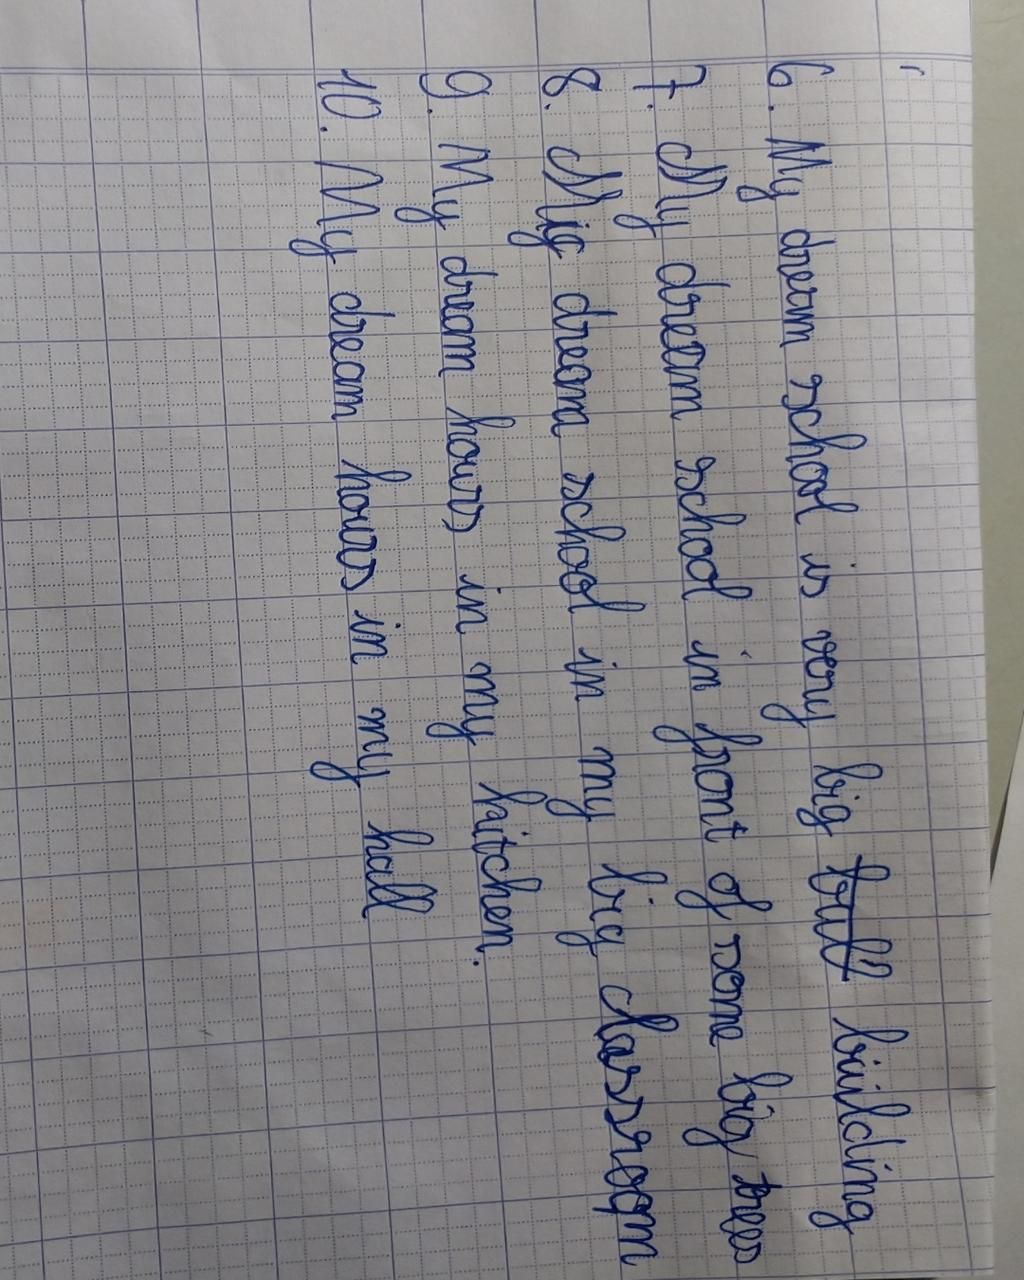 6. My dream school is very big building
7. My dream school in front of some big trees
8. My dream school in my big classroom
9. My dream hours in my kitchen.
10. My dream hours in my hall